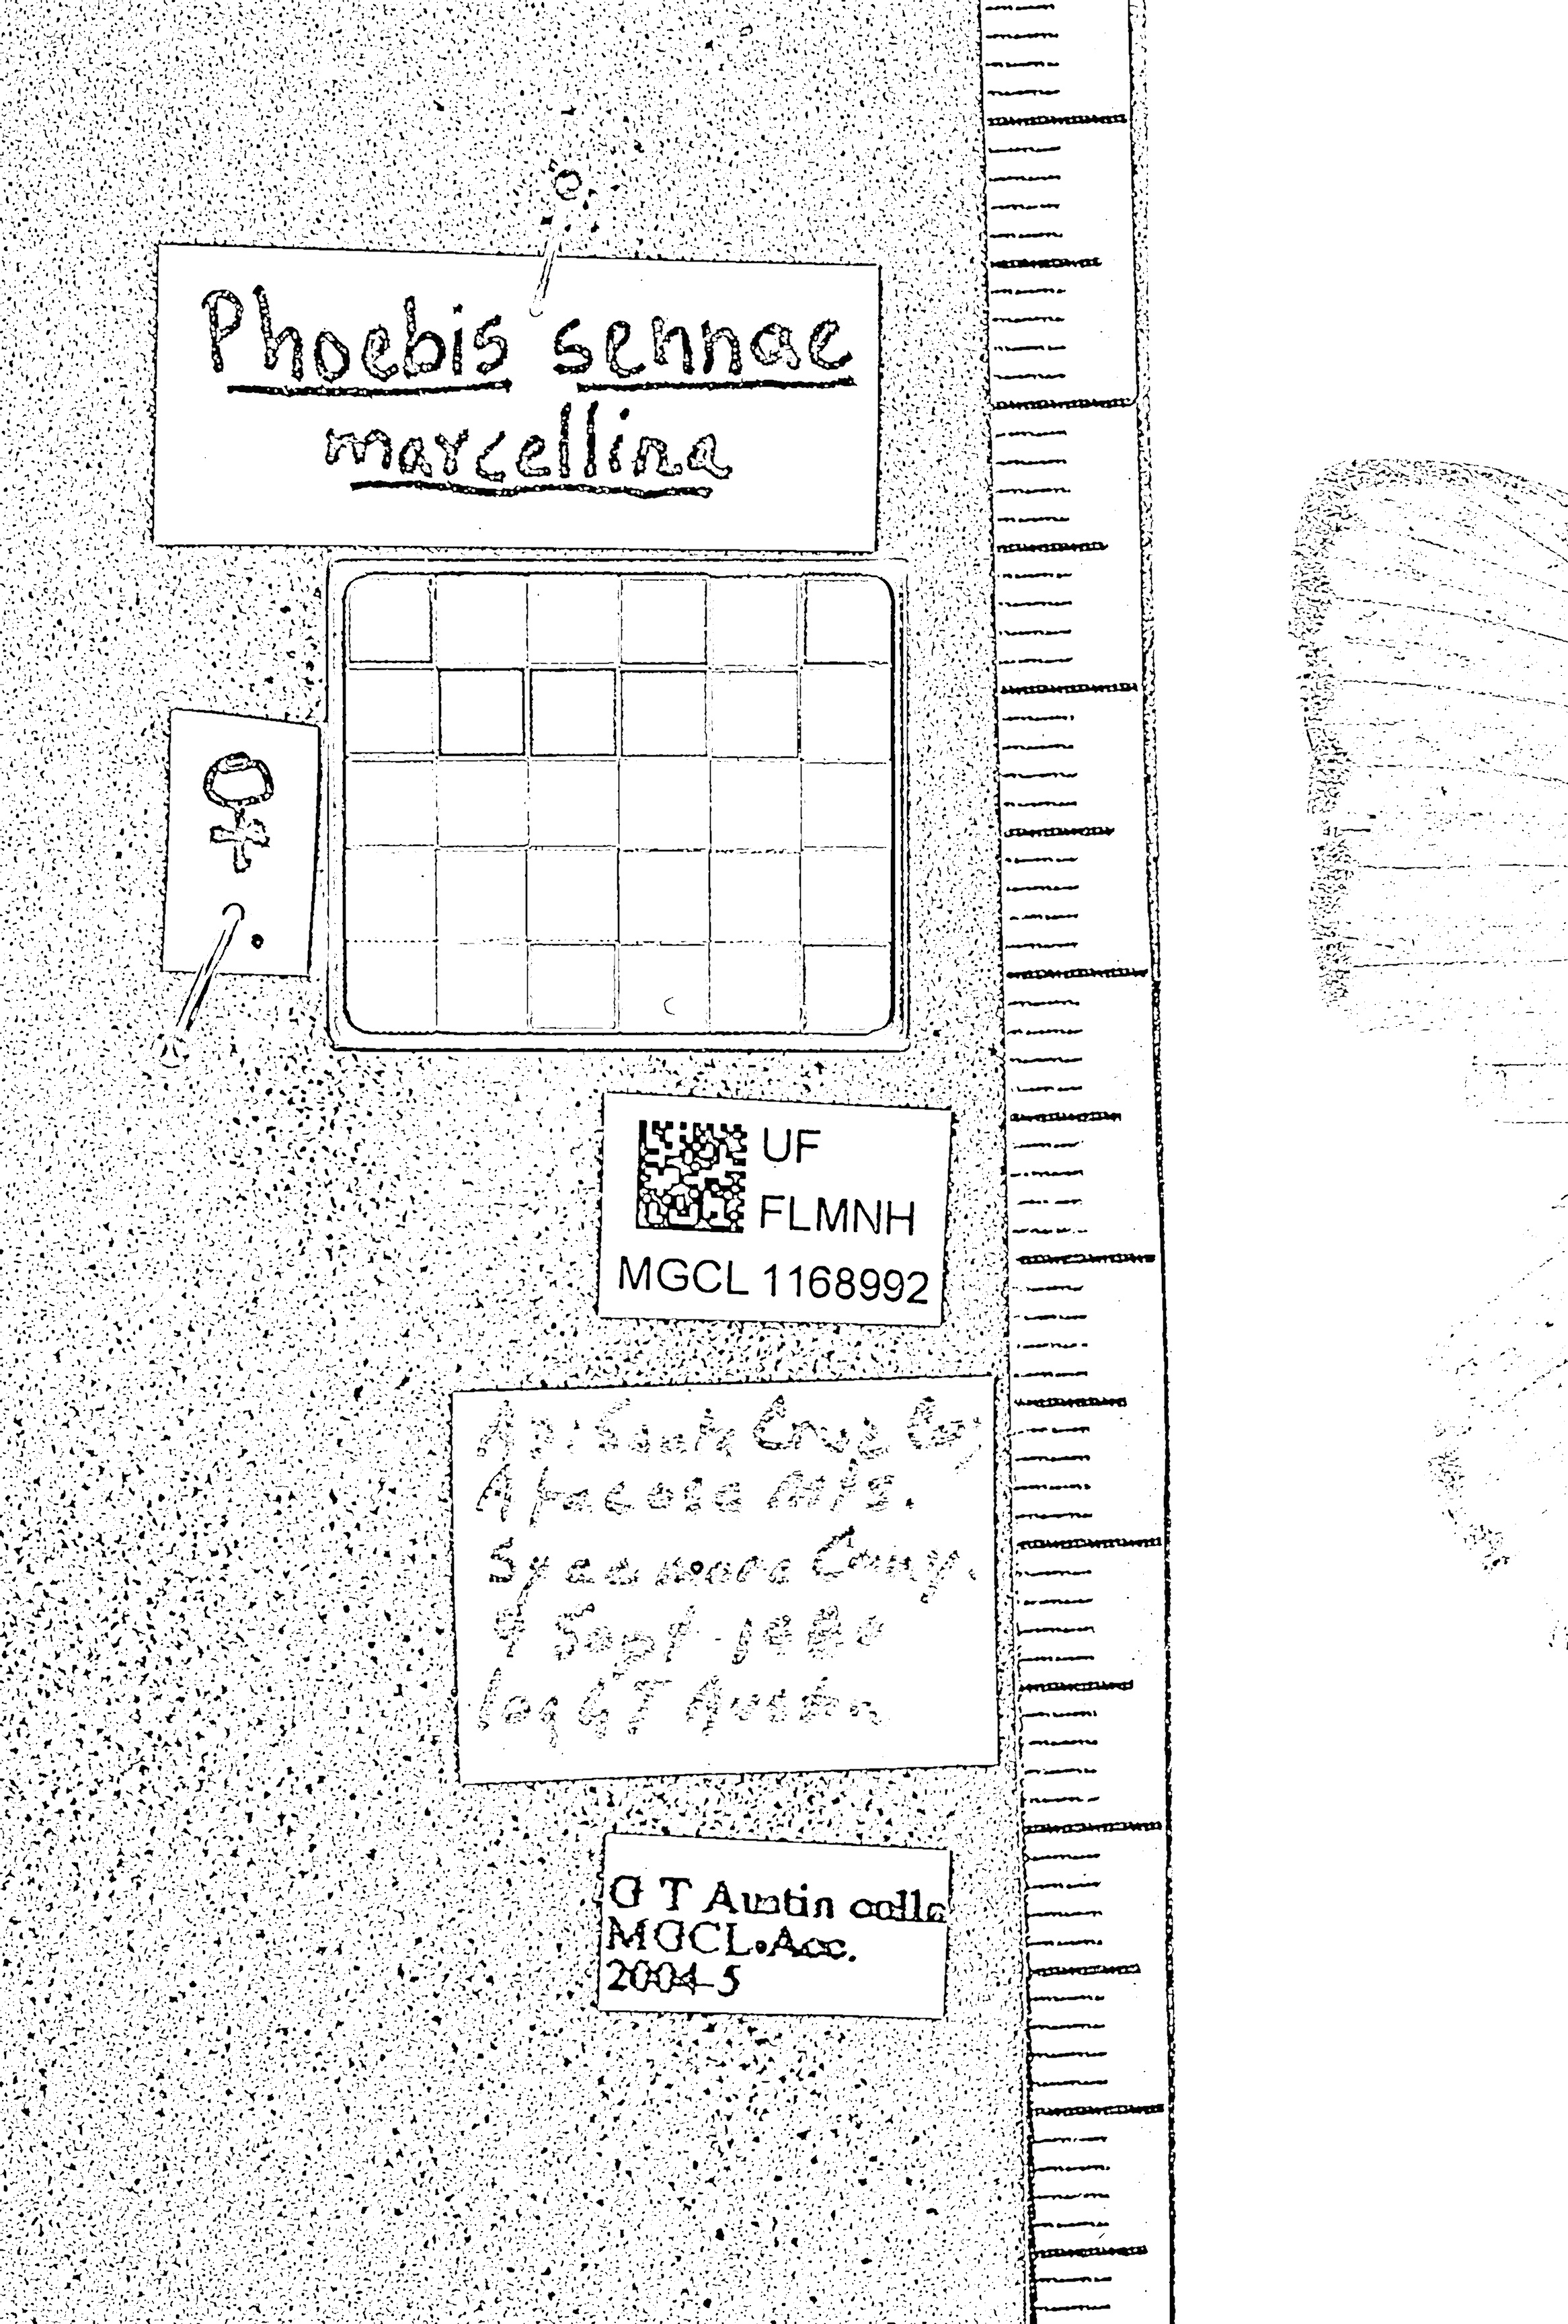 Phoebis sennae
marcellina
♀
UF
FLMNH
MGCL 1168992
Santa Cruz Co;
Atacosa Mts.
Sycamore Cany.
9 Sept. 1980
leg GT Austin
G T Austin colln
MGCL Acc.
2004-5